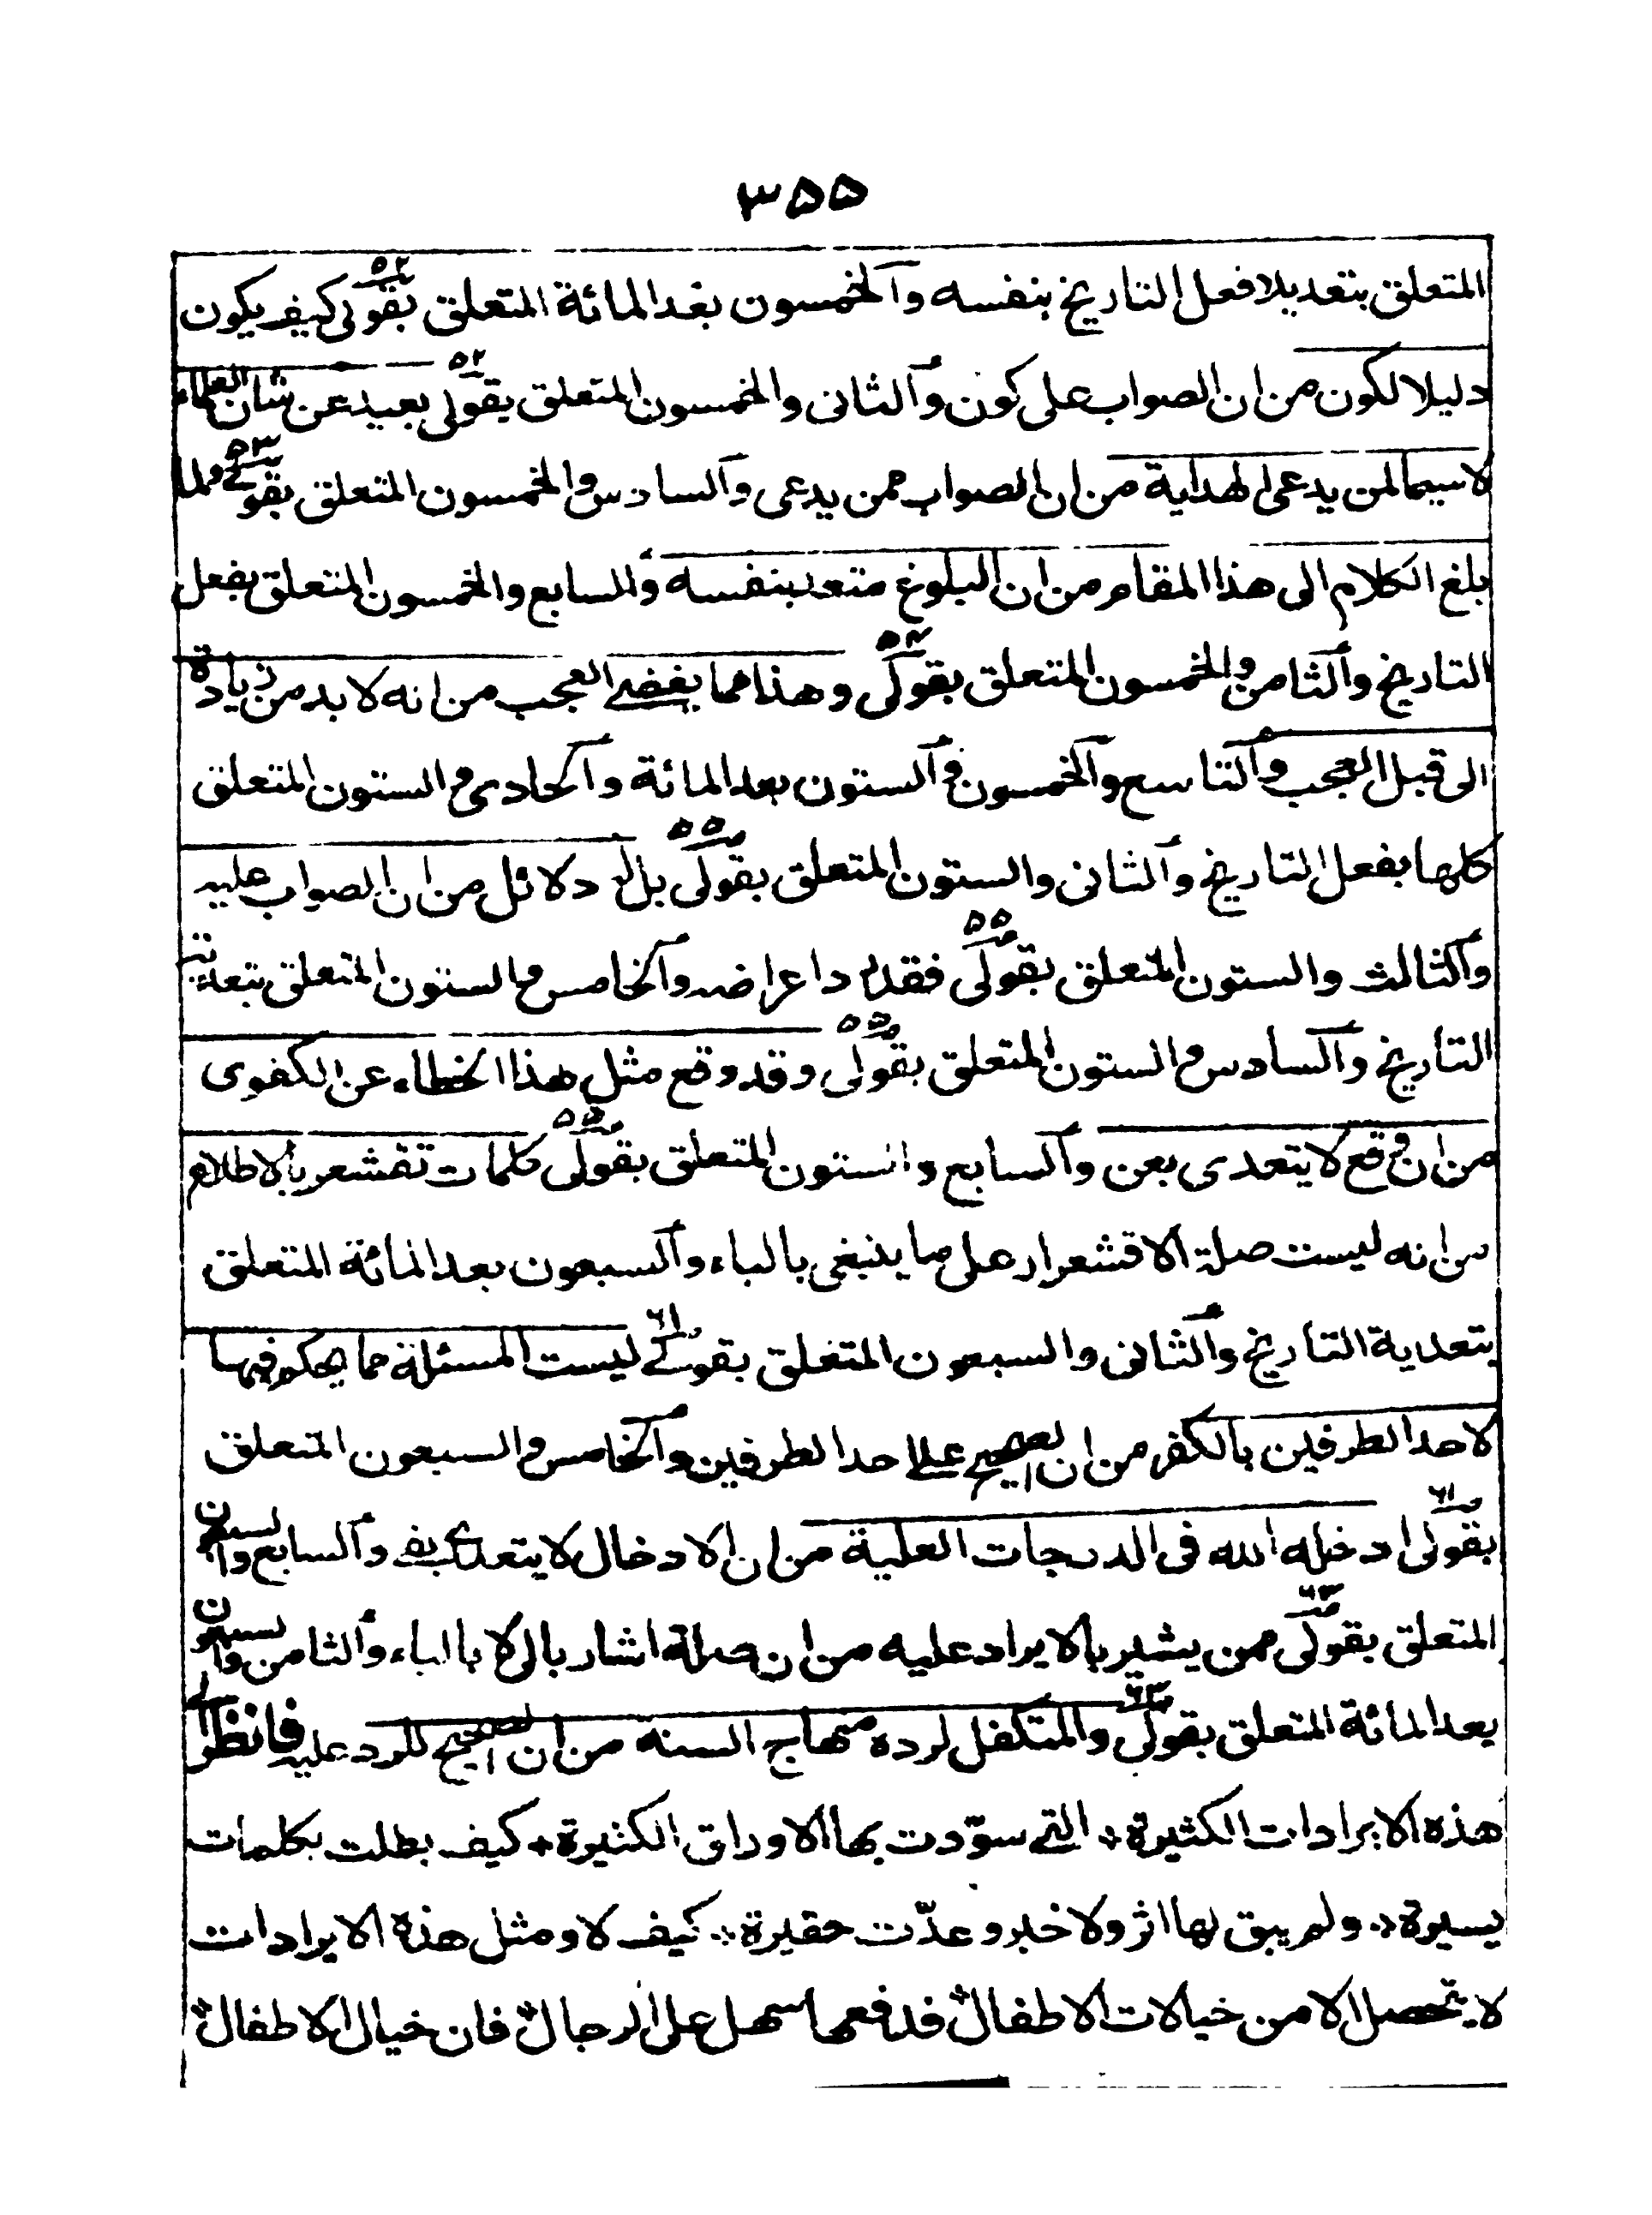 ٣٥٥
المتعلق بتعديلا فعل التاريخ بنفسه والخمسون بعد المائة المتعلق بقولى ٥٢ كيف يكون
دليلا لكون من ان الصواب على كون والثانى والخمسون المتعلق بقولى ٥٢ بعيد عن شان العلماء
لا سيما لمن يدعى الهداية من ان الصواب ممن يدعى والسادس والخمسون المتعلق بقولى ٥٣ ولما
بلغ الكلام الى هذا المقام من ان البلوغ متعد بنفسه والسابع والخمسون المتعلق بفعل
التاريخ والثامن والخمسون المتعلق بقولى ٥٤ وهذا مما يفضى العجب من انه لا بد من زيادة
الى قبل العجب والتاسع والخمسون والستون بعد المائة والحادى والستون المتعلق
كلها بفعل التاريخ والثانى والستون المتعلق بقولى ٥٥ بل له دلائل من ان الصواب عليه
والثالث والستون المتعلق بقولى ٥٥ فقد زاد اعراضه والخامس والستون المتعلق بتعدية
التاريخ والسادس والستون المتعلق بقولى ٥٥ وقد وقع مثل هذا الخطاء عن الكفوى
من ان وقع لا يتعدى بعن والسابع والستون المتعلق بقولى ٥٥ كلمات تقشعر بالاطلاع
من انه ليست صلة الاقشعرار على ما ينبغى بالباء والسبعون بعد المائة المتعلق
بتعدية التاريخ والثانى والسبعون المتعلق بقولى ٦١ ليست المسئلة مما يحكم فيها
لاحد الطرفين بالكفر من ان الصحيح على احد الطرفين والخامس والسبعون المتعلق
بقولى ٦١ ادخله الله فى الدرجات العلية من ان الادخال لا يتعدى بفى والسابع والسبعون
المتعلق بقولى ٦٣ ممن يشير بالايراد عليه من ان صلة اشار بالى لا بالباء والثامن والسبعون
بعد المائة المتعلق بقولى ٦٣ والمتكفل لرده منهاج السنه من ان الصحيح للرد عليه فانظر الى
هذه الايرادات الكثيرة * التى سوّدت بها الاوراق الكثيرة * كيف بطلت بكلمات
يسيرة * ولم يبق لها اثر ولا خبر وعدّت حقيرة * كيف لا ومثل هذه الايرادات
لا يتحصل الا من خيالات الاطفال * فدفعها سهل على الرجال * فان خيال الاطفال *